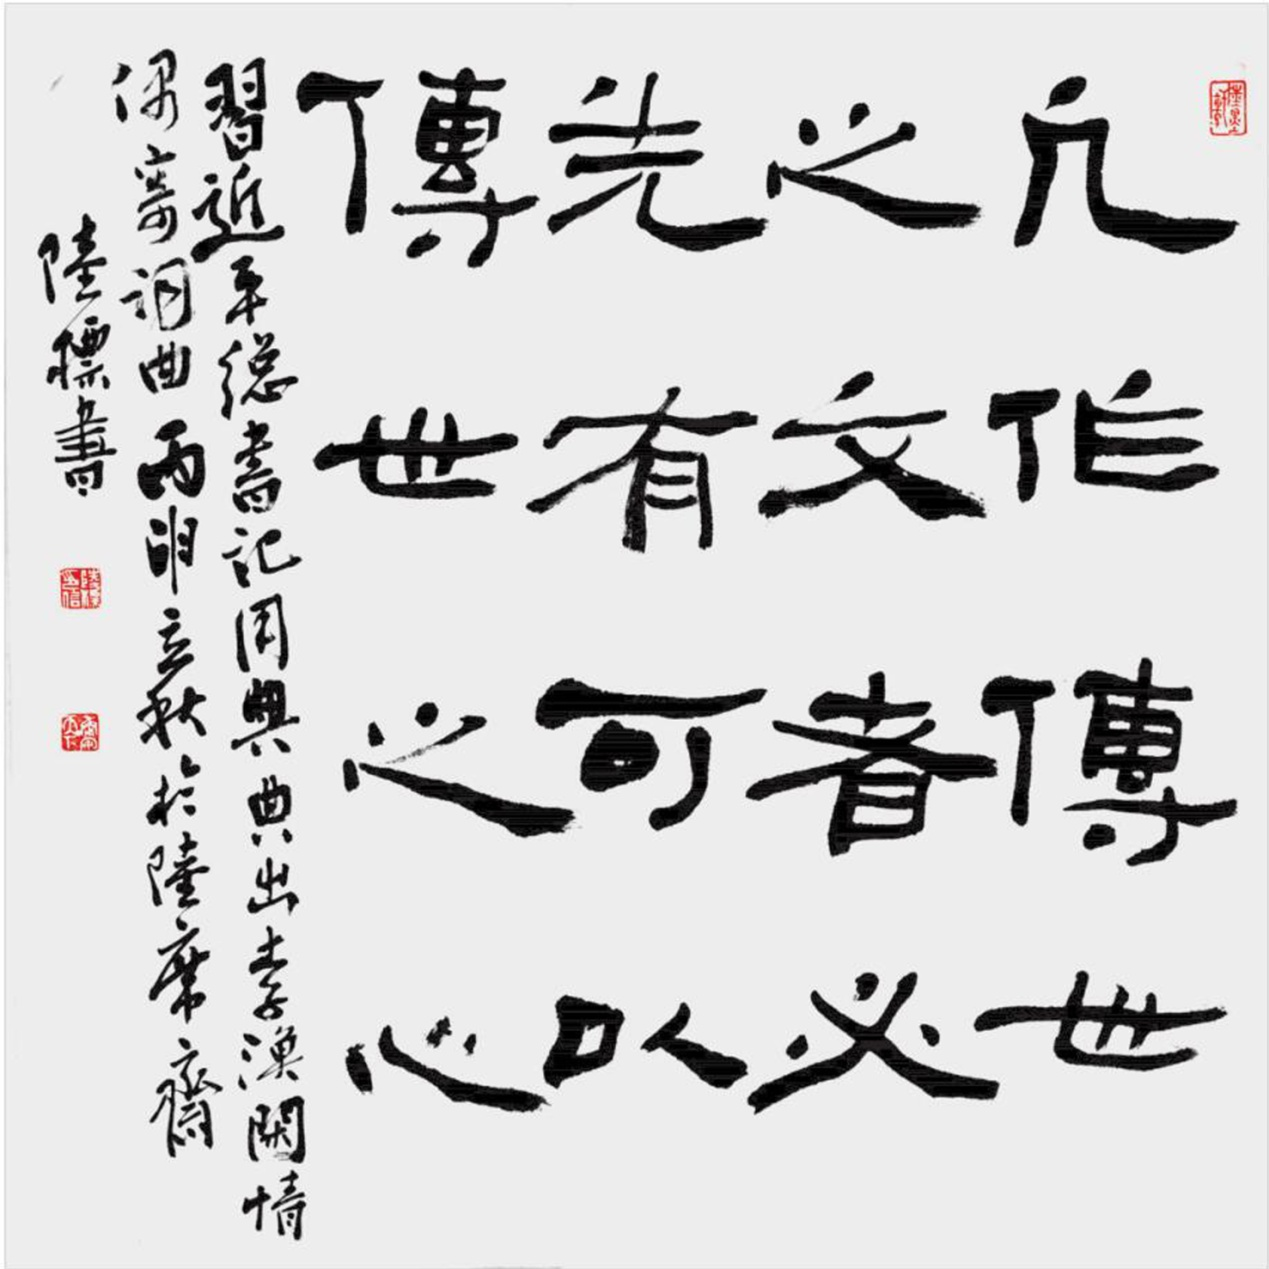 凡作傳世
之文者必
先有可以
傳世之心
習近平總書記用典典出李漁閑情
偶寄詞曲丙申立秋於陸席齋
陸標書